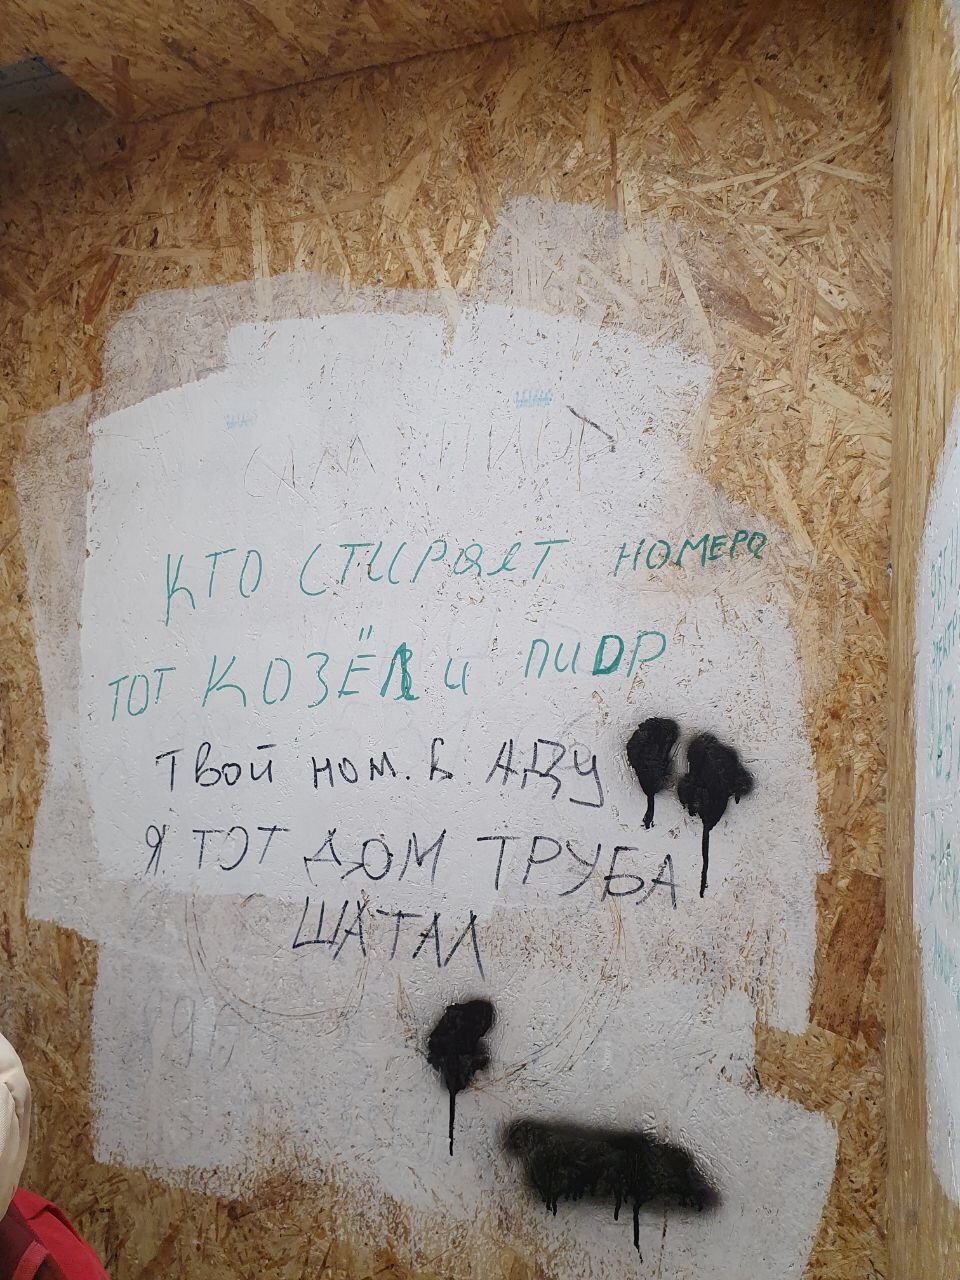 КТО СТИРАЕТ НОМЕРА
ТОТ КОЗЁЛ И ПИДР
ТВОЙ НОМ. В АДУ
Я ТОТ ДОМ ТРУБА
ШАТАЛ